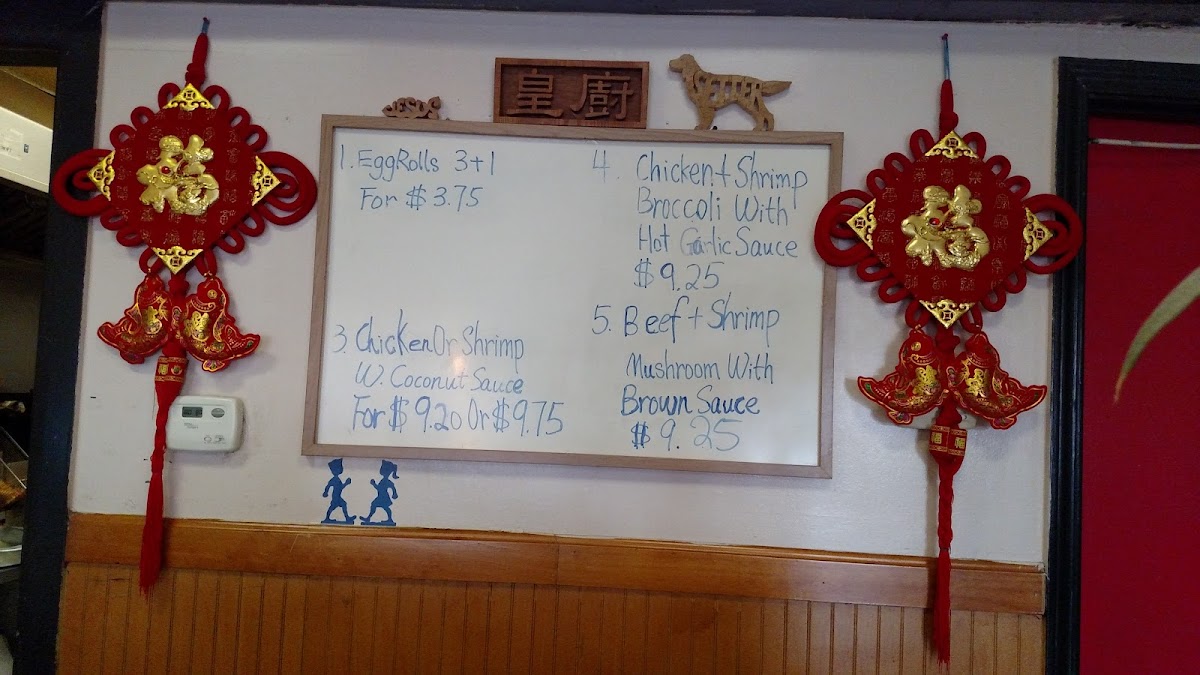 JESUS
皇廚
SETTER
福
福
1. EggRolls 3+1
For $3.75
3. Chicken Or Shrimp
W. Coconut Sauce
For $9.20 Or $9.75
4. Chicken + Shrimp
Broccoli With
Hot Garlic Sauce
$9.25
5. Beef + Shrimp
Mushroom With
Brown Sauce
$9.25
福 福